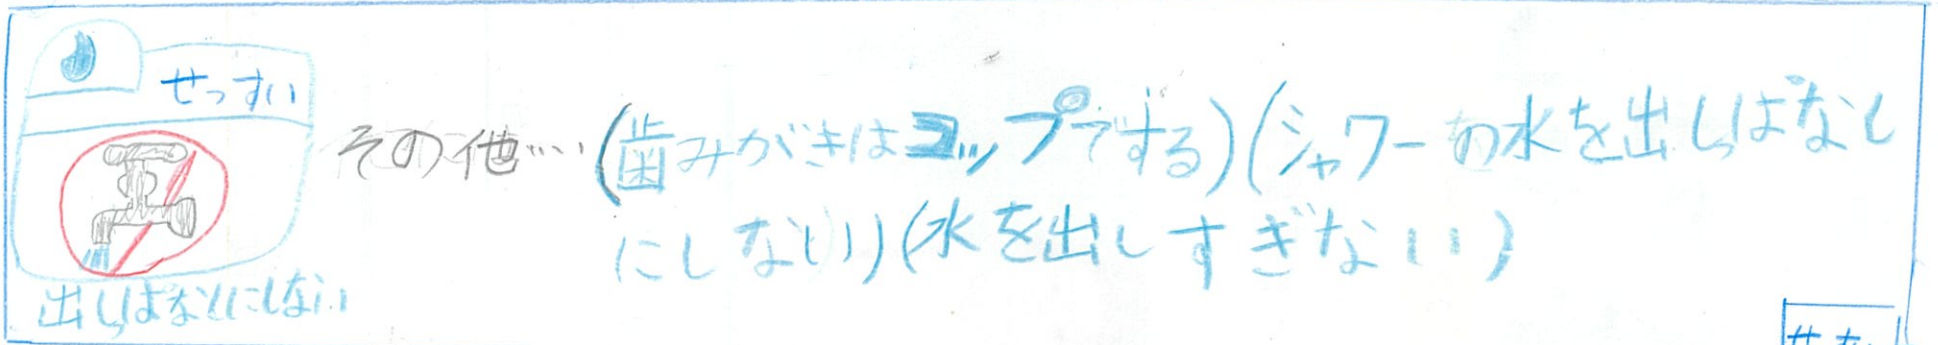 せっすい
出しっぱなしにしない
その他…(歯みがきはコップでする)(シャワーの水を出しっぱなし
にしない)(水を出しすぎない)